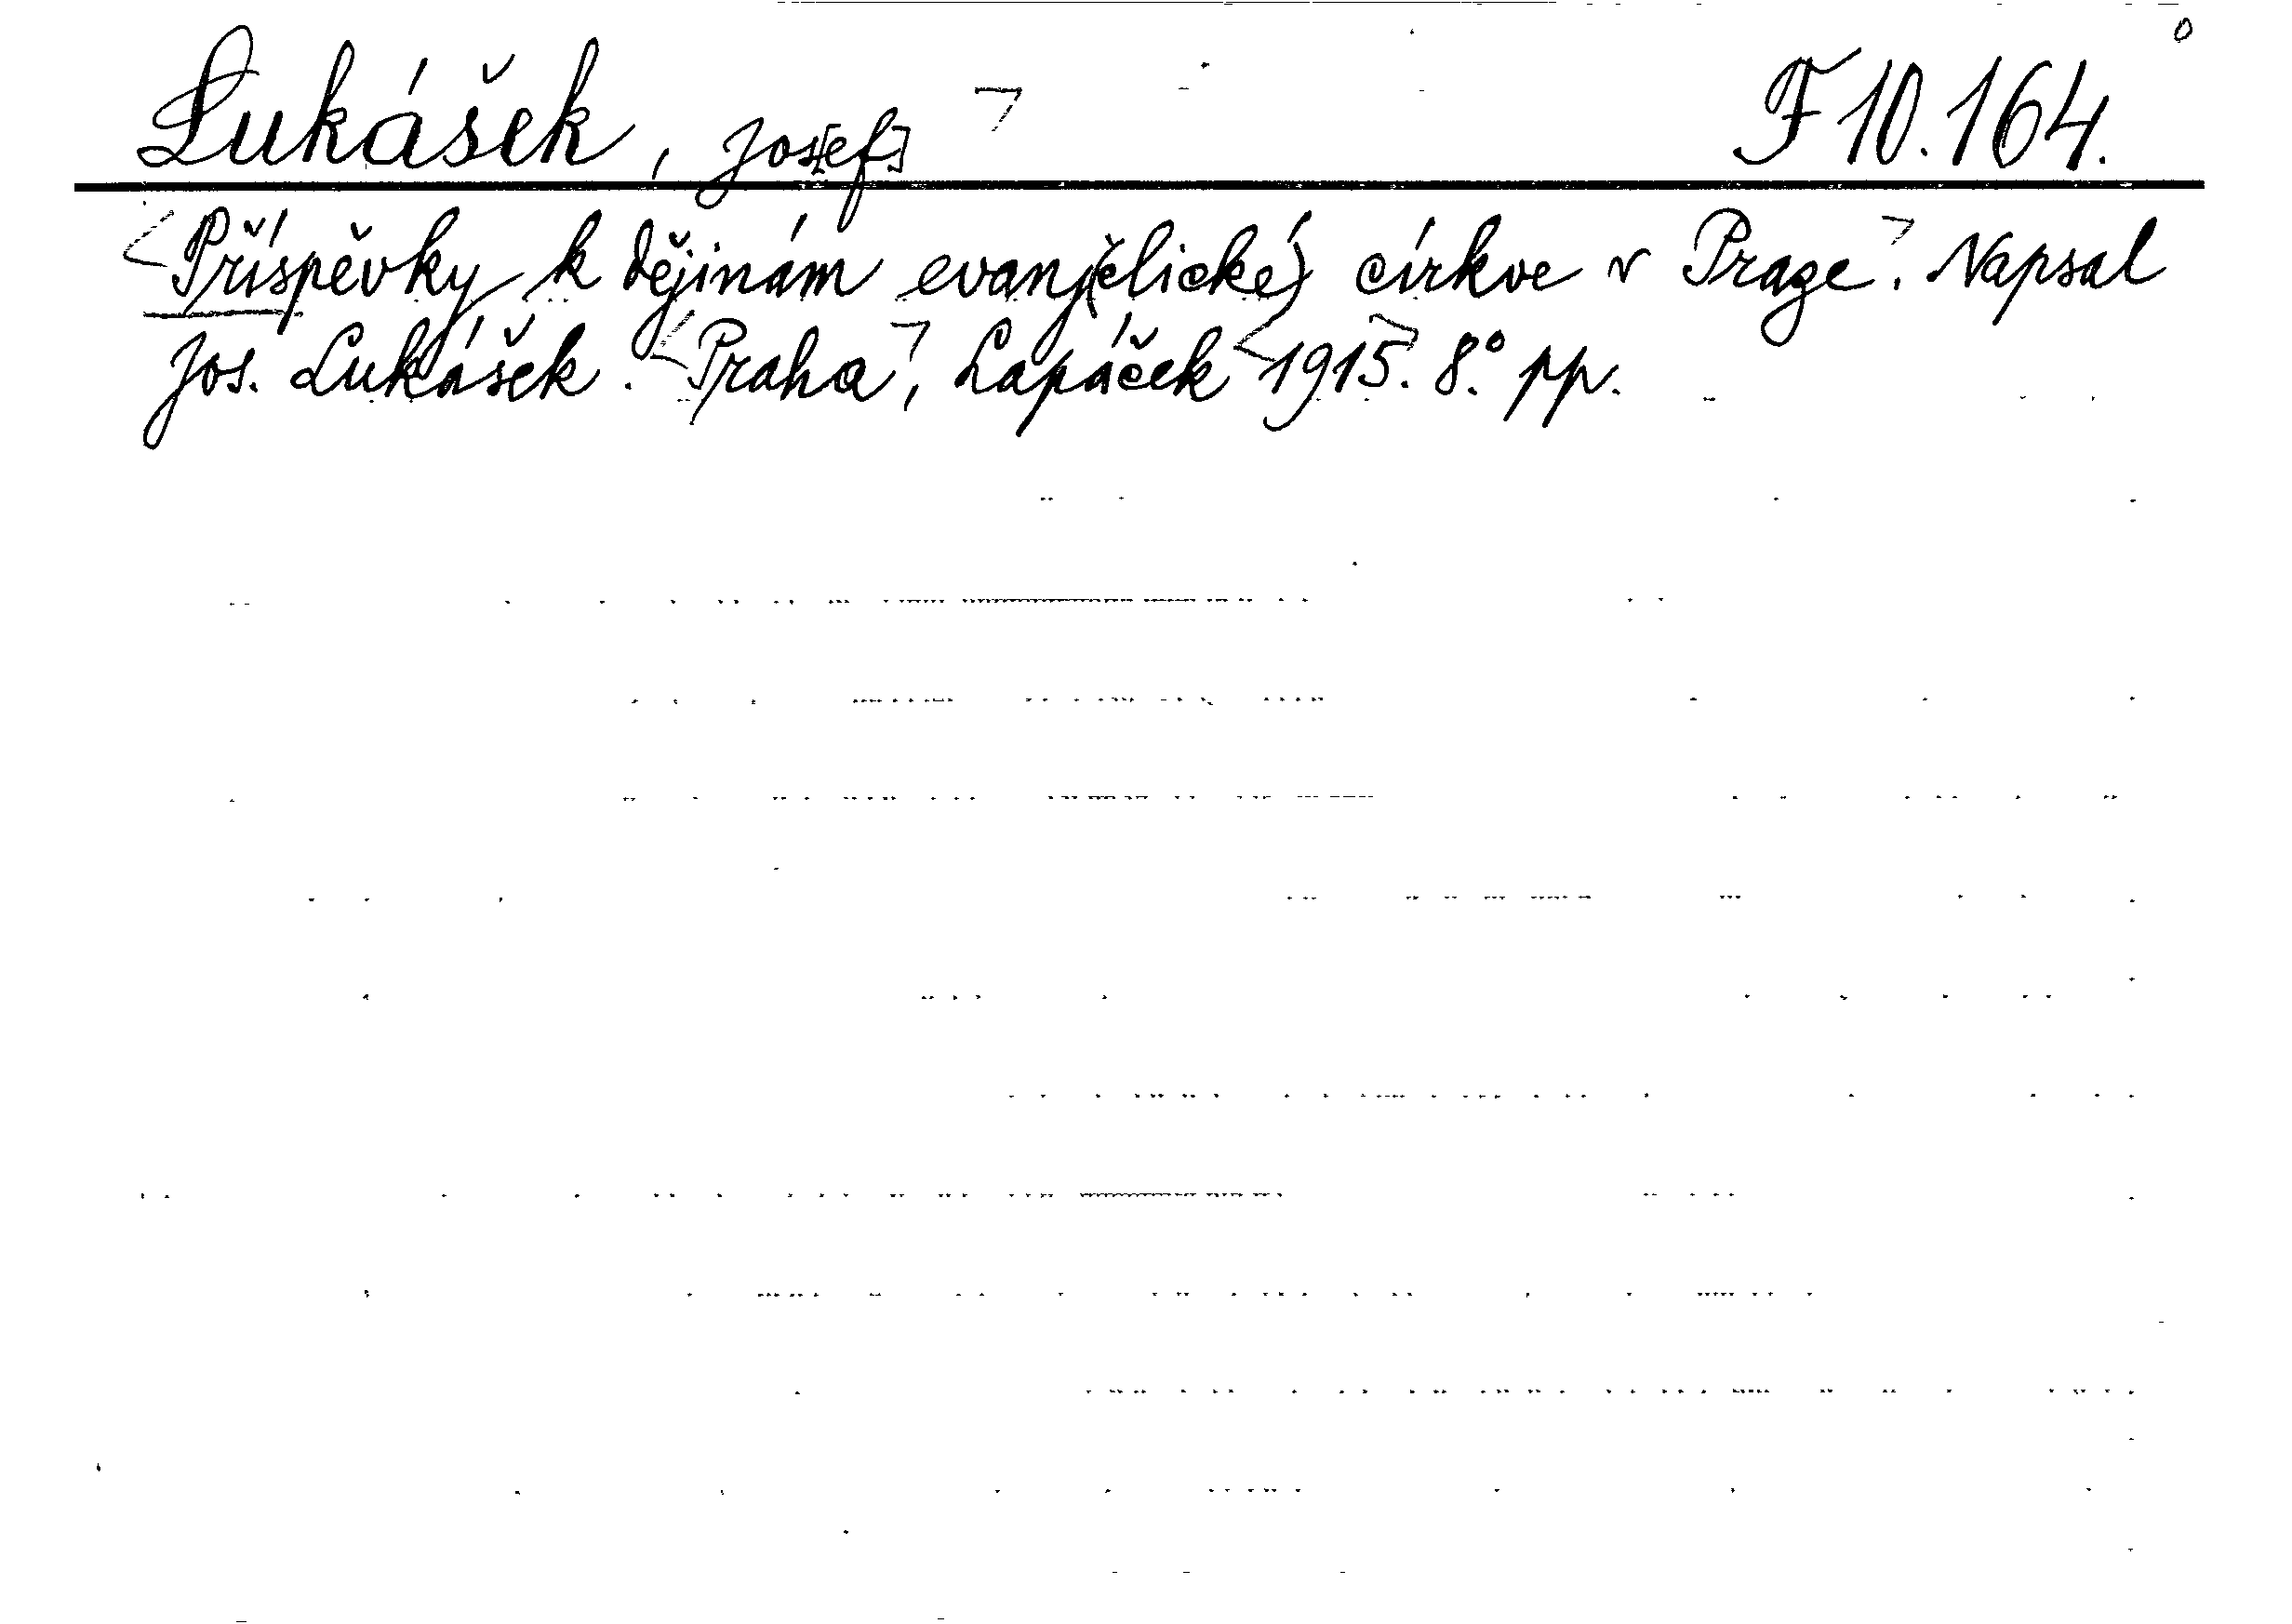 Lukášek, Jos[ef] F 10.164.
Příspěvky k dějinám evanj(elické) církve v Praze. Napsal
Jos. Lukášek. Praha, Lapáček 1915. 8° pp.